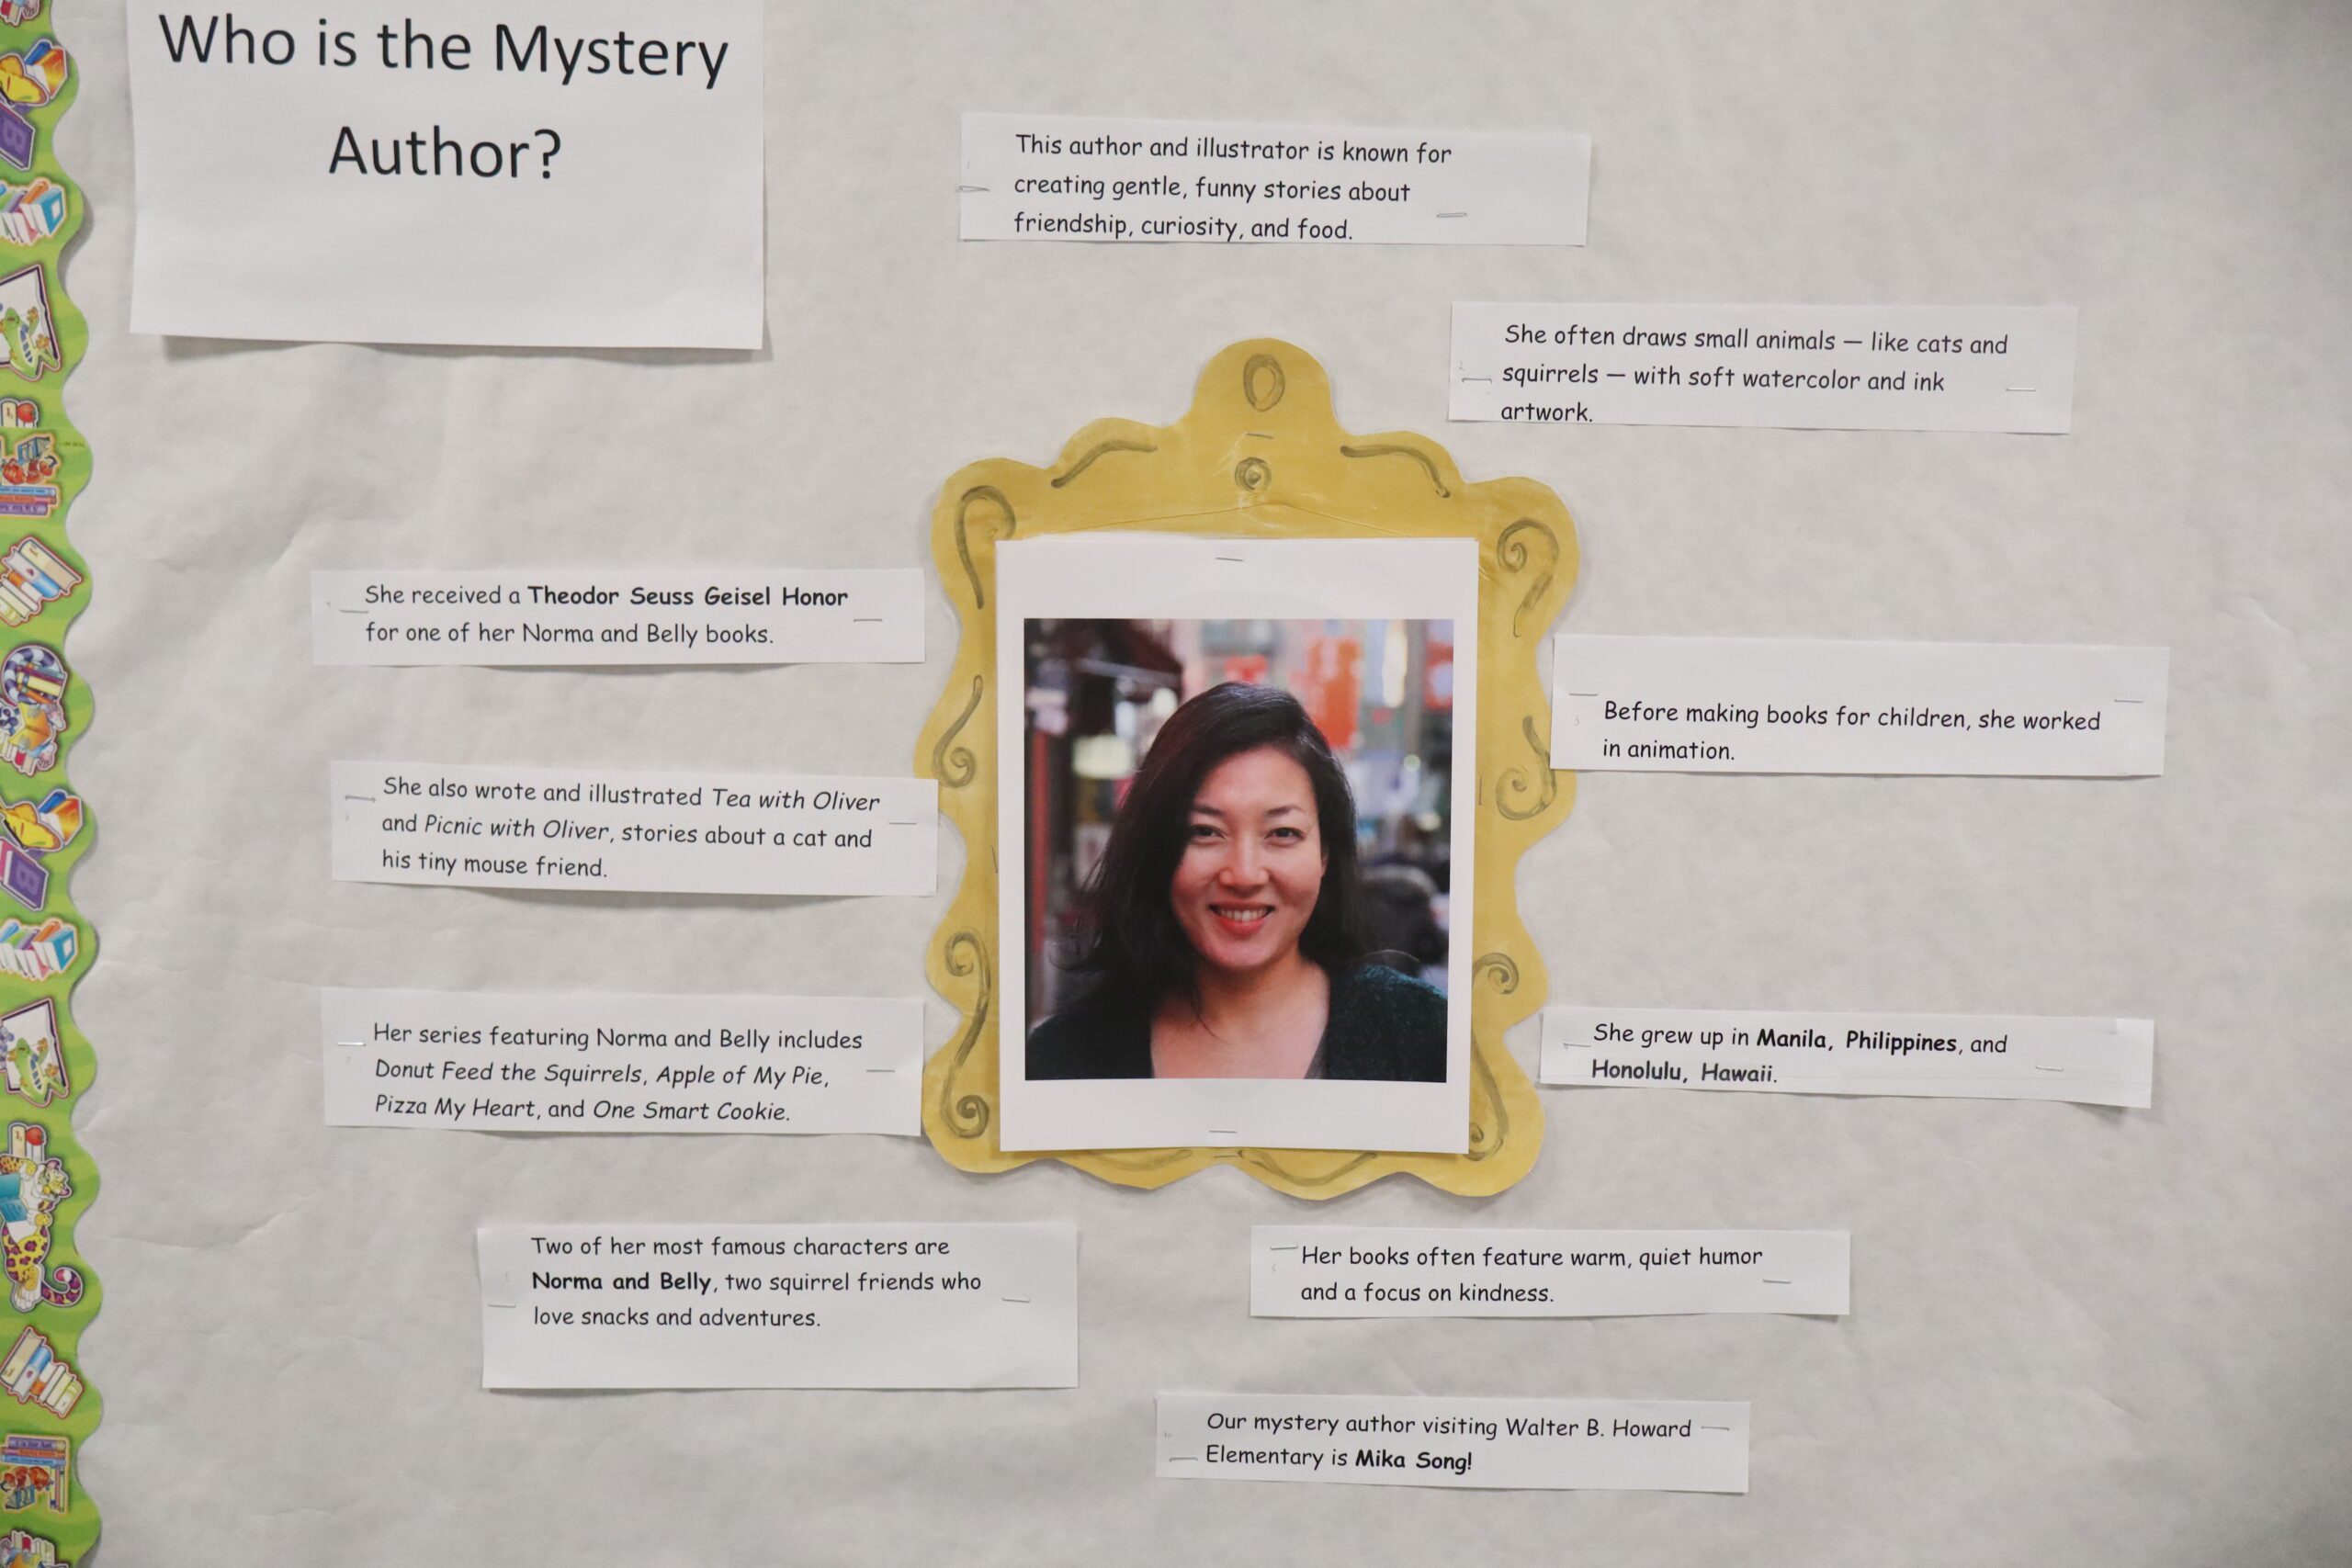 Who is the Mystery
Author?
This author and illustrator is known for
creating gentle, funny stories about
friendship, curiosity, and food.
She often draws small animals — like cats and
squirrels — with soft watercolor and ink
artwork.
She received a Theodor Seuss Geisel Honor
for one of her Norma and Belly books.
Before making books for children, she worked
in animation.
She also wrote and illustrated Tea with Oliver
and Picnic with Oliver, stories about a cat and
his tiny mouse friend.
Her series featuring Norma and Belly includes
Donut Feed the Squirrels, Apple of My Pie,
Pizza My Heart, and One Smart Cookie.
She grew up in Manila, Philippines, and
Honolulu, Hawaii.
Two of her most famous characters are
Norma and Belly, two squirrel friends who
love snacks and adventures.
Her books often feature warm, quiet humor
and a focus on kindness.
Our mystery author visiting Walter B. Howard
Elementary is Mika Song!